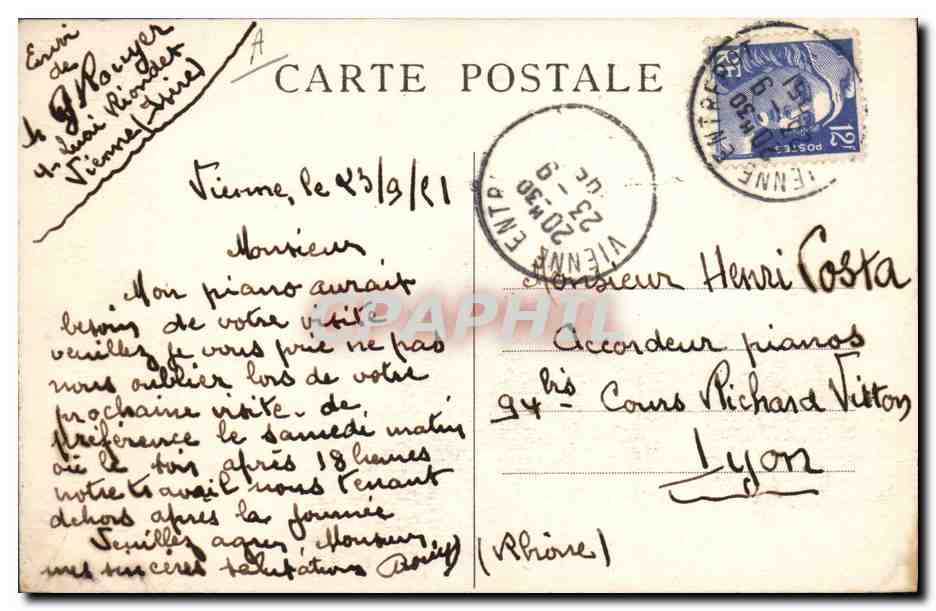 Envoi
de
Rouyer
4 Quai Riondet
Vienne (Isère)
A
CARTE POSTALE
Vienne, le 23/9/51
Monsieur
Mon piano aurait
besoin de votre visite
veuillez je vous prie ne pas
nous oublier lors de votre
prochaine visite. de
préférence le samedi matin
où le soir après 18 heures
notre travail nous tenant
dehors après la journée
Veuillez agréer Monsieur
mes sincères salutations Rouyer
VIENNE ENTR
20 H 30
23 - 9
VIENNE ENTREPOT
20 H 30
9
51
RF
POSTES
12F
Monsieur Henri Costa
Accordeur pianos
94 bis Cours Richard Vitton
Lyon
(Rhône)
CPAPHIL